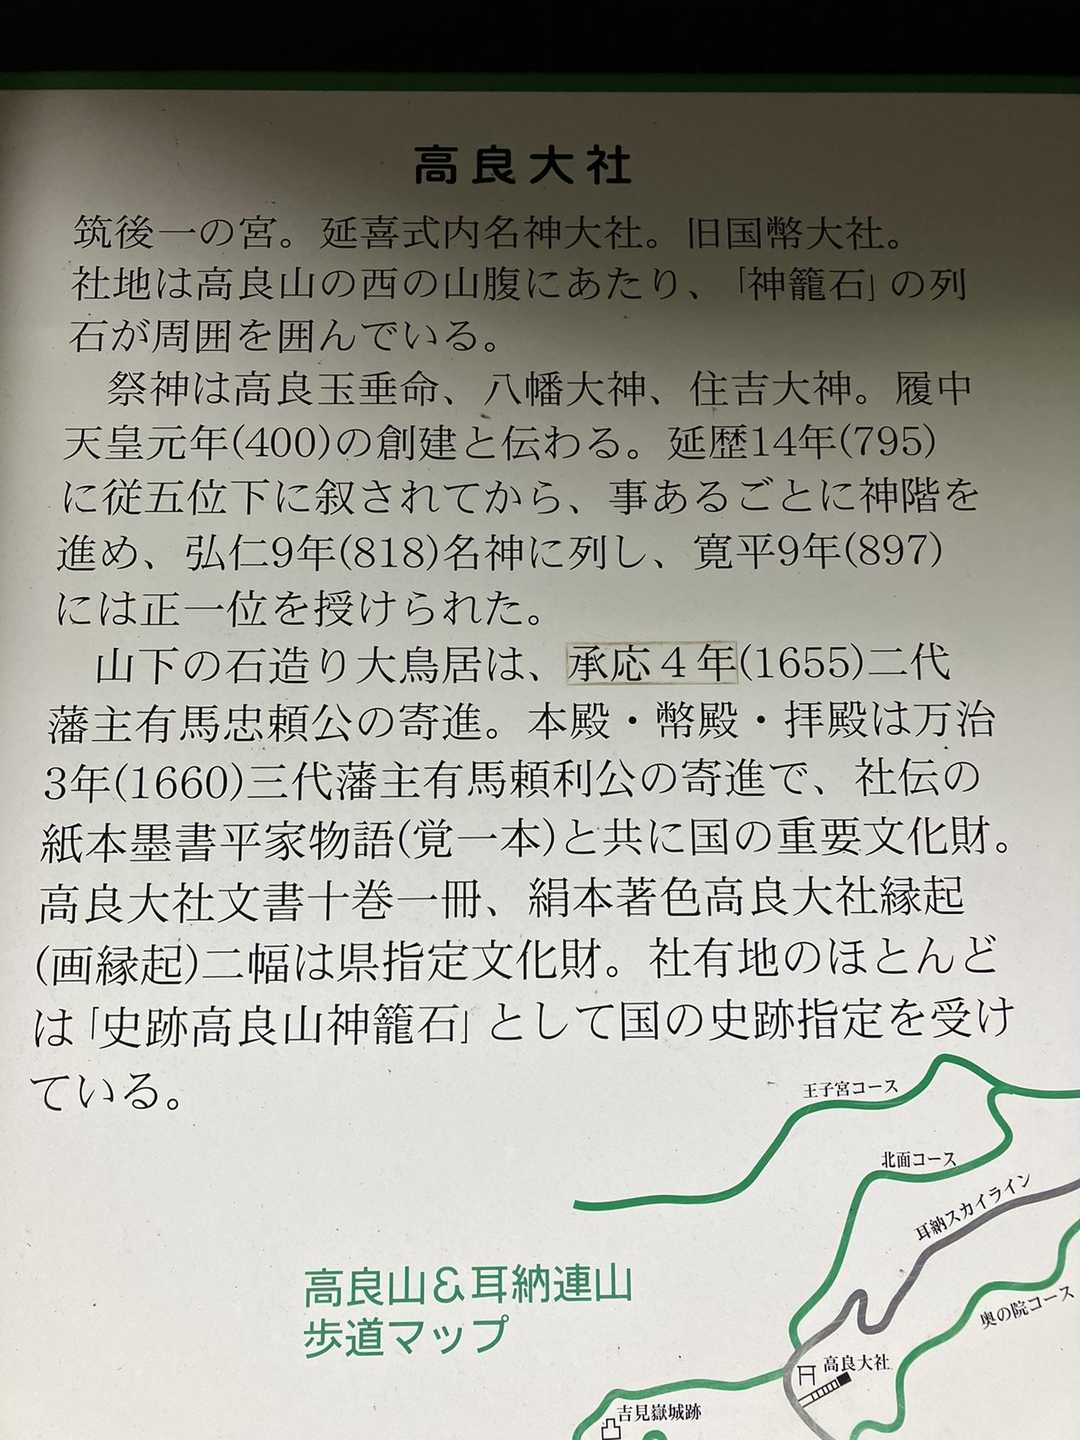 高良大社
筑後一の宮。延喜式内名神大社。旧国幣大社。
社地は高良山の西の山腹にあたり、「神籠石」の列
石が周囲を囲んでいる。
祭神は高良玉垂命、八幡大神、住吉大神。履中
天皇元年(400)の創建と伝わる。延歴14年(795)
に従五位下に叙されてから、事あるごとに神階を
進め、弘仁9年(818)名神に列し、寛平9年(897)
には正一位を授けられた。
山下の石造り大鳥居は、承応4年(1655)二代
藩主有馬忠頼公の寄進。本殿・幣殿・拝殿は万治
3年(1660)三代藩主有馬頼利公の寄進で、社伝の
紙本墨書平家物語(覚一本)と共に国の重要文化財。
高良大社文書十巻一冊、絹本著色高良大社縁起
(画縁起)二幅は県指定文化財。社有地のほとんど
は「史跡高良山神籠石」として国の史跡指定を受け
ている。
王子宮コース
北面コース
耳納スカイライン
高良山&耳納連山
歩道マップ
奥の院コース
高良大社
吉見嶽城跡